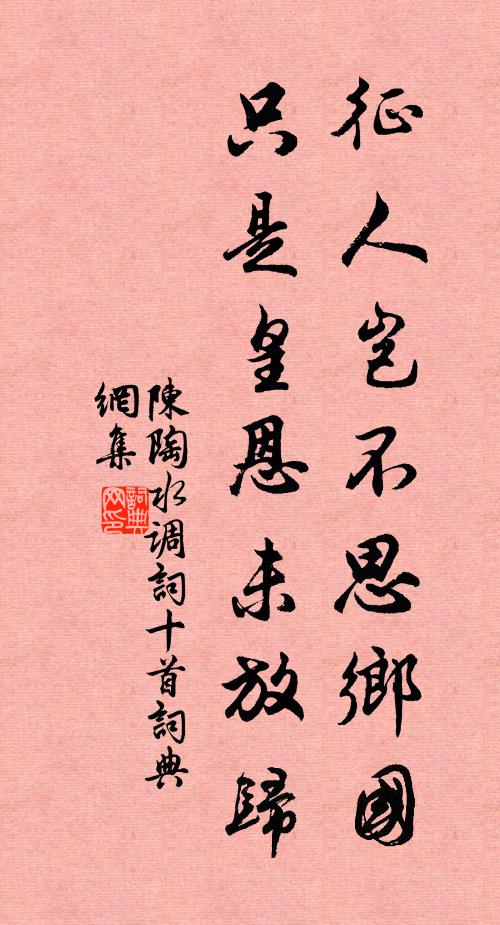 征人岂不思鄉國
只是皇恩未放歸
陳陶水调詞十首詞典
網集
詞典
网印